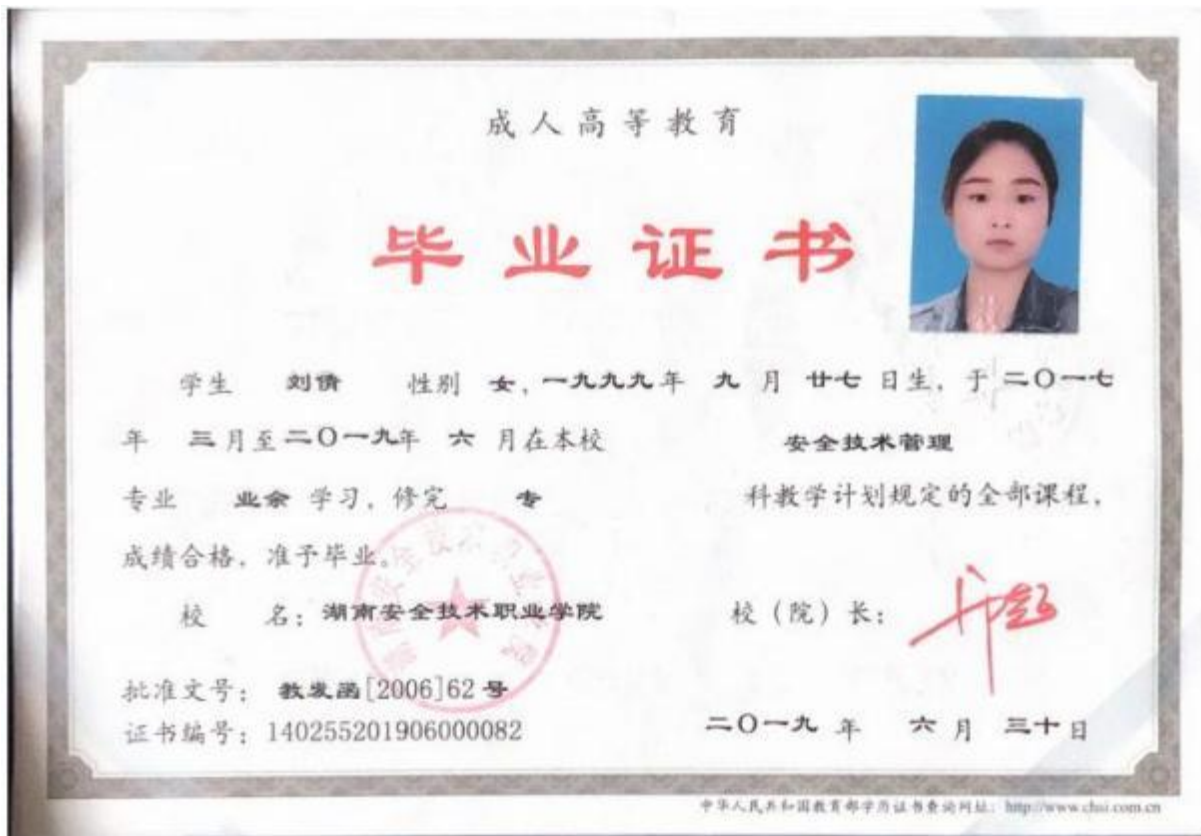 成人高等教育
毕业证书
学生 刘倩 性别 女，一九九九年 九 月 廿七 日生，于 二〇一七
年 三月至二〇一九年 六 月在本校 安全技术管理
专业 业余 学习，修完 专 科教学计划规定的全部课程，
成绩合格，准予毕业。
校 名：湖南安全技术职业学院 校（院）长：
批准文号：教发函[2006]62号
证书编号：140255201906000082
二〇一九 年 六 月 三十 日
中华人民共和国教育部学历证书查询网址：http://www.chsi.com.cn